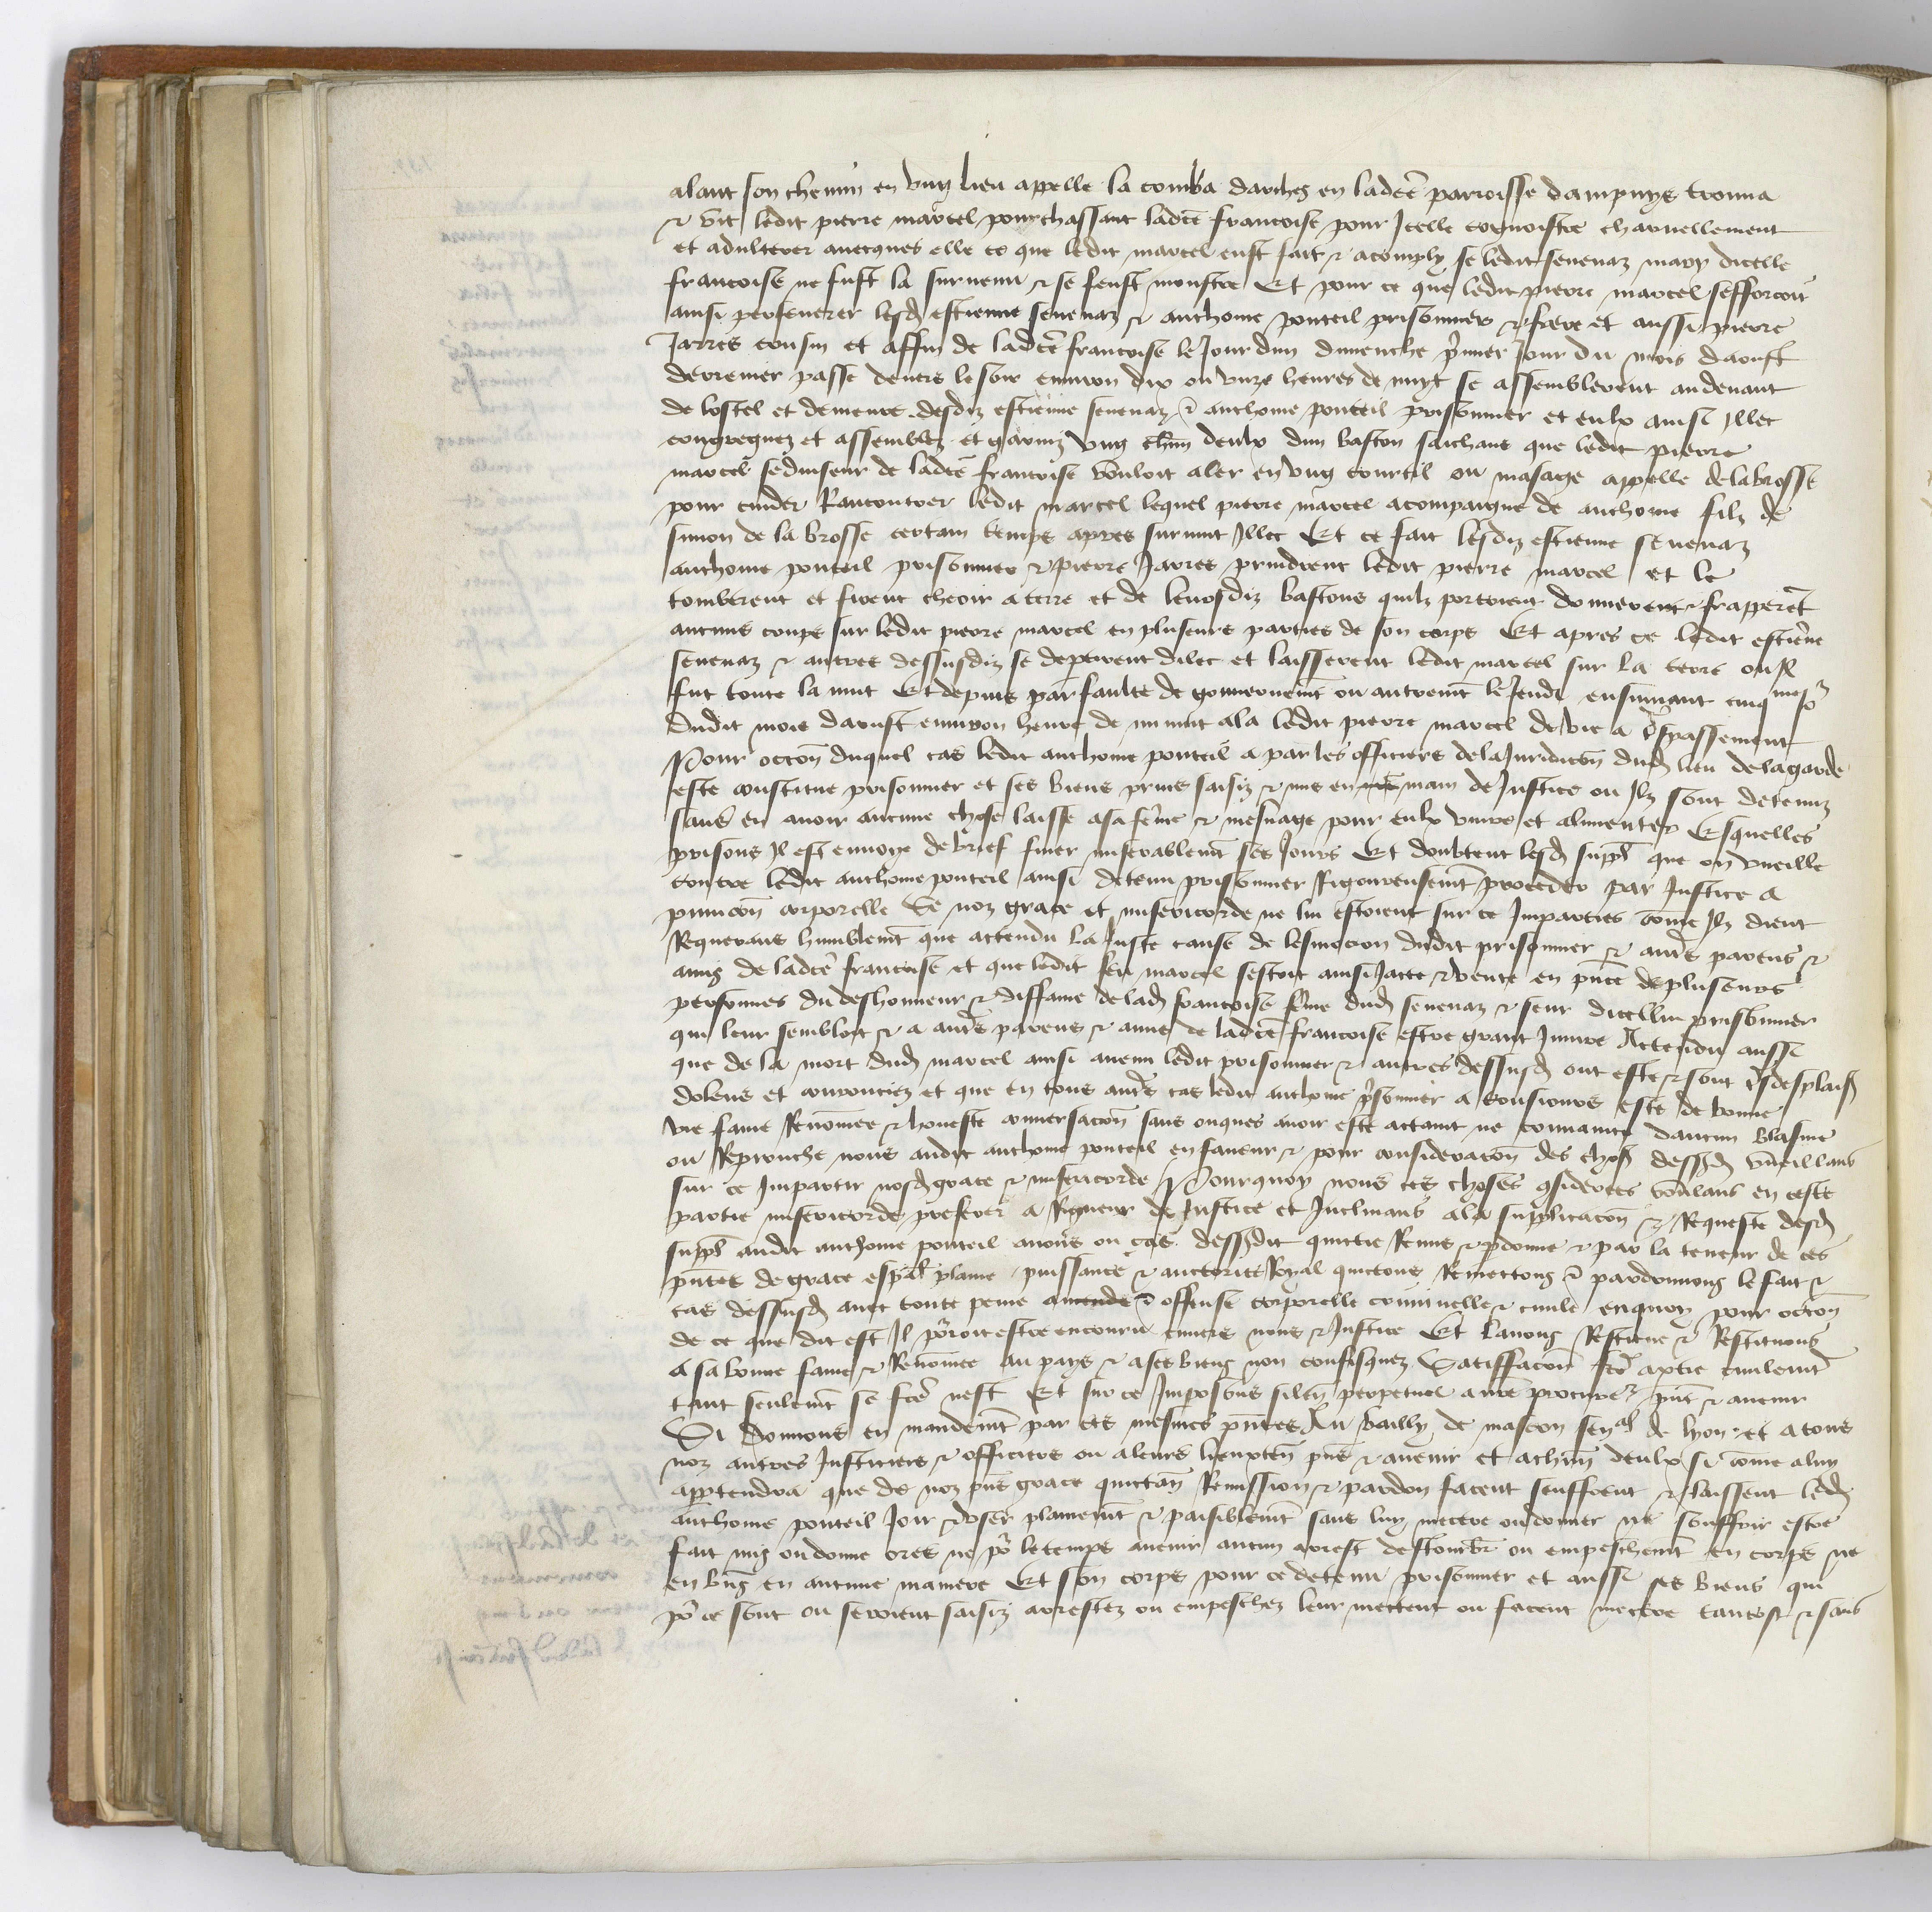 alant son chemin en ung lieu appelle la comba darches en ladcte parroisse dampuys trouva
& vit ledit pierre marcel pourchassant ladcte francoise pour Icelle cognoistre charnellement
et adulterer avecques elle ce que ledit marcel eust fait & acomply se ledit sevenaz mary dicelle
francoise ne fust la survenu & se feust monstre Et pour ce que ledit pierre marcel sefforcoit
ainsi perseverer lesd estienne sevenaz & anthome ponteil prisonnier & frere et aussi pierre
Jarres cousin et affin de ladcte francoise le Jour dun dimenche premier Jour du mois daoust
derrenier passe devers le soir environ dix ou unze heures de nuyt se assemblerent audevant
de lostel et demeure desdiz estienne sevenaz & anthome ponteil prisonnier et eulx ainsi Illec
congreguez et assemblez et garniz ung chun deulx dun baston saichans que ledit pierre
marcel seduiseur de ladcte francoise vouloit aler en ung courtil ou masage appelle delabrosse
pour cuider Rancontrer ledit marcel lequel pierre marcel acompaigne de anthome filz de
simon de la brosse certain temps apres survint Illec Et ce fait lesdiz estienne sevenaz
anthome ponteil prisonnier & pierre Jarres prindrent ledit pierre marcel et le
tomberent et firent cheoir a terre et de leursdiz bastons quilz portoient donnerent & frapperet
aucuns coups sur ledit pierre marcel en pluseurs parties de son corps Et apres ce ledit estiene
sevenaz & autres dessusdiz se departirent dilec et laisserent ledit marcel sur la terre ou Il
fut toute la nuit Et depuis par faulte de gouvernemt ou autremt le Jeudi ensuivant cinqme Jor
dudit mois daoust environ heure de minuit ala ledit pierre marcel de vie a trespassement
Pour occon duquel cas ledit anthome ponteil a par les officiers dela Juridicon dud lieu delagarde
este constitue prisonnier et ses biens prins saisiz & mis en main de Justice ou Ilz sont detenuz
sans en avoir aucune chose laisse asa feme & mesnage pour eulx vivre et alimenter Esquelles
prisons Il est en voye de brief finer miserablemt ses Jours Et doubtent lesd suppl que on vueille
contre ledit anthome ponteil ainsi detenu prisonnier Rigoureusemt proceder par Justice a
punicon corporelle Se noz grace et misericorde ne lui estoient sur ce Imparties come Ilz dient
Requerans humblemt que attendu la Juste cause de lesmocion dudit prisonnier & autres parens &
amis de ladcte francoise et que ledit feu marcel sestoit ainsi Jacte & vente en pnce de pluseurs
personnes du deshonneur & diffame delad francoise feme dud sevenaz & seur dicellui prisonnier
qui leur sembloit & a autres parens & amis de ladcte francoise estre grant Injure Attendu aussi
que de la mort dud marcel ainsi avenu ledit prisonnier & autres dessusd ont este & sont tresdesplais
dolens et courouciez et que en tous autres cas ledit anthome prisonnier a tousiours este de bonne
vie fame Renommee & honeste conversacon sans onques avoir este actaint ne convaincu daucun blasme
ou Reprouche nous audit anthome ponteil en faveur & pour consideracon des chos dessusd vueillans
sur ce Impartir nosd grace & misericorde Pourquoy nous ces choses considerees voulans en ceste
partie misericorde preferer a Rigueur de Justice et Inclinans ala supplicacon & Requeste desd
suppl audit anthome ponteil avons ou cas dessusdit quictie Remis & pardonne & par la teneur de ces
pntes de grace espal plaine puissance & auctorite Royal quictons Remettons & pardonnons le fait &
cas dessusd avec toute peine amende & offense corporelle criminelle & civile enquoy pour occon
de ce que dit est Il porroit estre encouru envers nous & Justice Et lavons Restitue & Restituons
A sa bonne fame & Renomee au pays & a ses biens non confisquez Satisfacon fcte a partie civilemt
tant seulemt se fcte nest Et sur ce Imposons silen perpetuel a nre procureur pnt & avenir
Si Donnons en mandemt par ces mesmes pntes Au bailly de mascon senal de lyon et a tous
noz autres Justiciers & officiers ou a leurs lieuxten pns & avenir et achun deulx si come a luy
appartendra que de noz pns grace quictan Remission & pardon facent seuffrent & laissent led
anthome ponteil Joir & user plainemt & paisiblemt sans luy mectre ou donner ne souffrir estre
fait mis ou donne ores ne por le temps avenir aucun arrest destourbr ou empeschemt en corps ne
en bns en aucune maniere Et son corps pour ce detenu prisonnier et aussi ses biens qui
por ce sont ou seroient saisiz arrestez ou empeschez leur mettent ou facent mectre tantost & sans